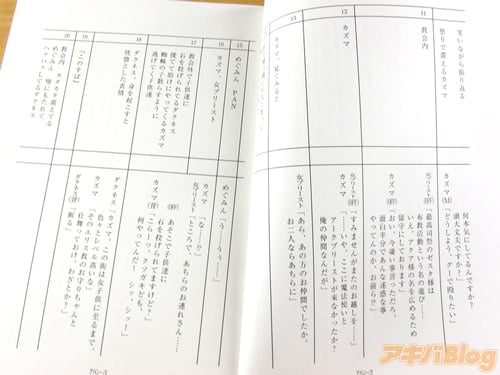 笑いながら振り返る
怒りで震えるカズマ
11
教会内
12
カズマ
13
カズマ
何本気にしてるんですか?
頭大丈夫ですか?」
カズマ(M)「どうしよう、グーで殴りたい」
女プリースト(OFF)「最高司祭のゼスタ様は
布教活動という名の遊び……
いえ、アクア様の名を広めるため
留守にしております」
カズマ(OFF)「おい、今凄い事言っただろ、
面白半分であんな迷惑な事
やってんのか、お前ら!?」
女プリースト(OFF)「すみませんがまたのお越しを……」
カズマ「……いや、ここに魔法使いと
アークプリーストが来なかったか?
俺の仲間なんだが」
女プリースト「あら、あの方のお仲間でしたか。
お二人ならあちらに」
カズS-2
15
めぐみん PAN
16
カズマ、女プリースト
17
教会外で子供達に
石を投げられてるダクネス
慌てて助けにやってくるカズマ
蜘蛛の子散らすように
逃げてく子供達
18
ダクネス、身を起こすと
恍惚とした表情
19
『このすば』
20
教会内 カタカタ震えてる
めぐみん 壁にもたれて
ヘァハァしてるダクネス
めぐみん「う……うぅ……」
カズマ「な……!?」
女プリースト「ところで、あちらのお連れさん……
(OFF)
あそこで子供達に
石を投げられてますけど?」
カズマ(背)「こらーっ、クソガキども!
何やってんだー! シッ、シッー」
ダクネス「カズマ、この街は女子供に至るまで、
色々とレベル高いな」
カズマ(OFF)「そのエリス教のお守りちゃんと
仕舞っておけ。わざとか?」
ダクネス(背)「断る」
アキバBlog